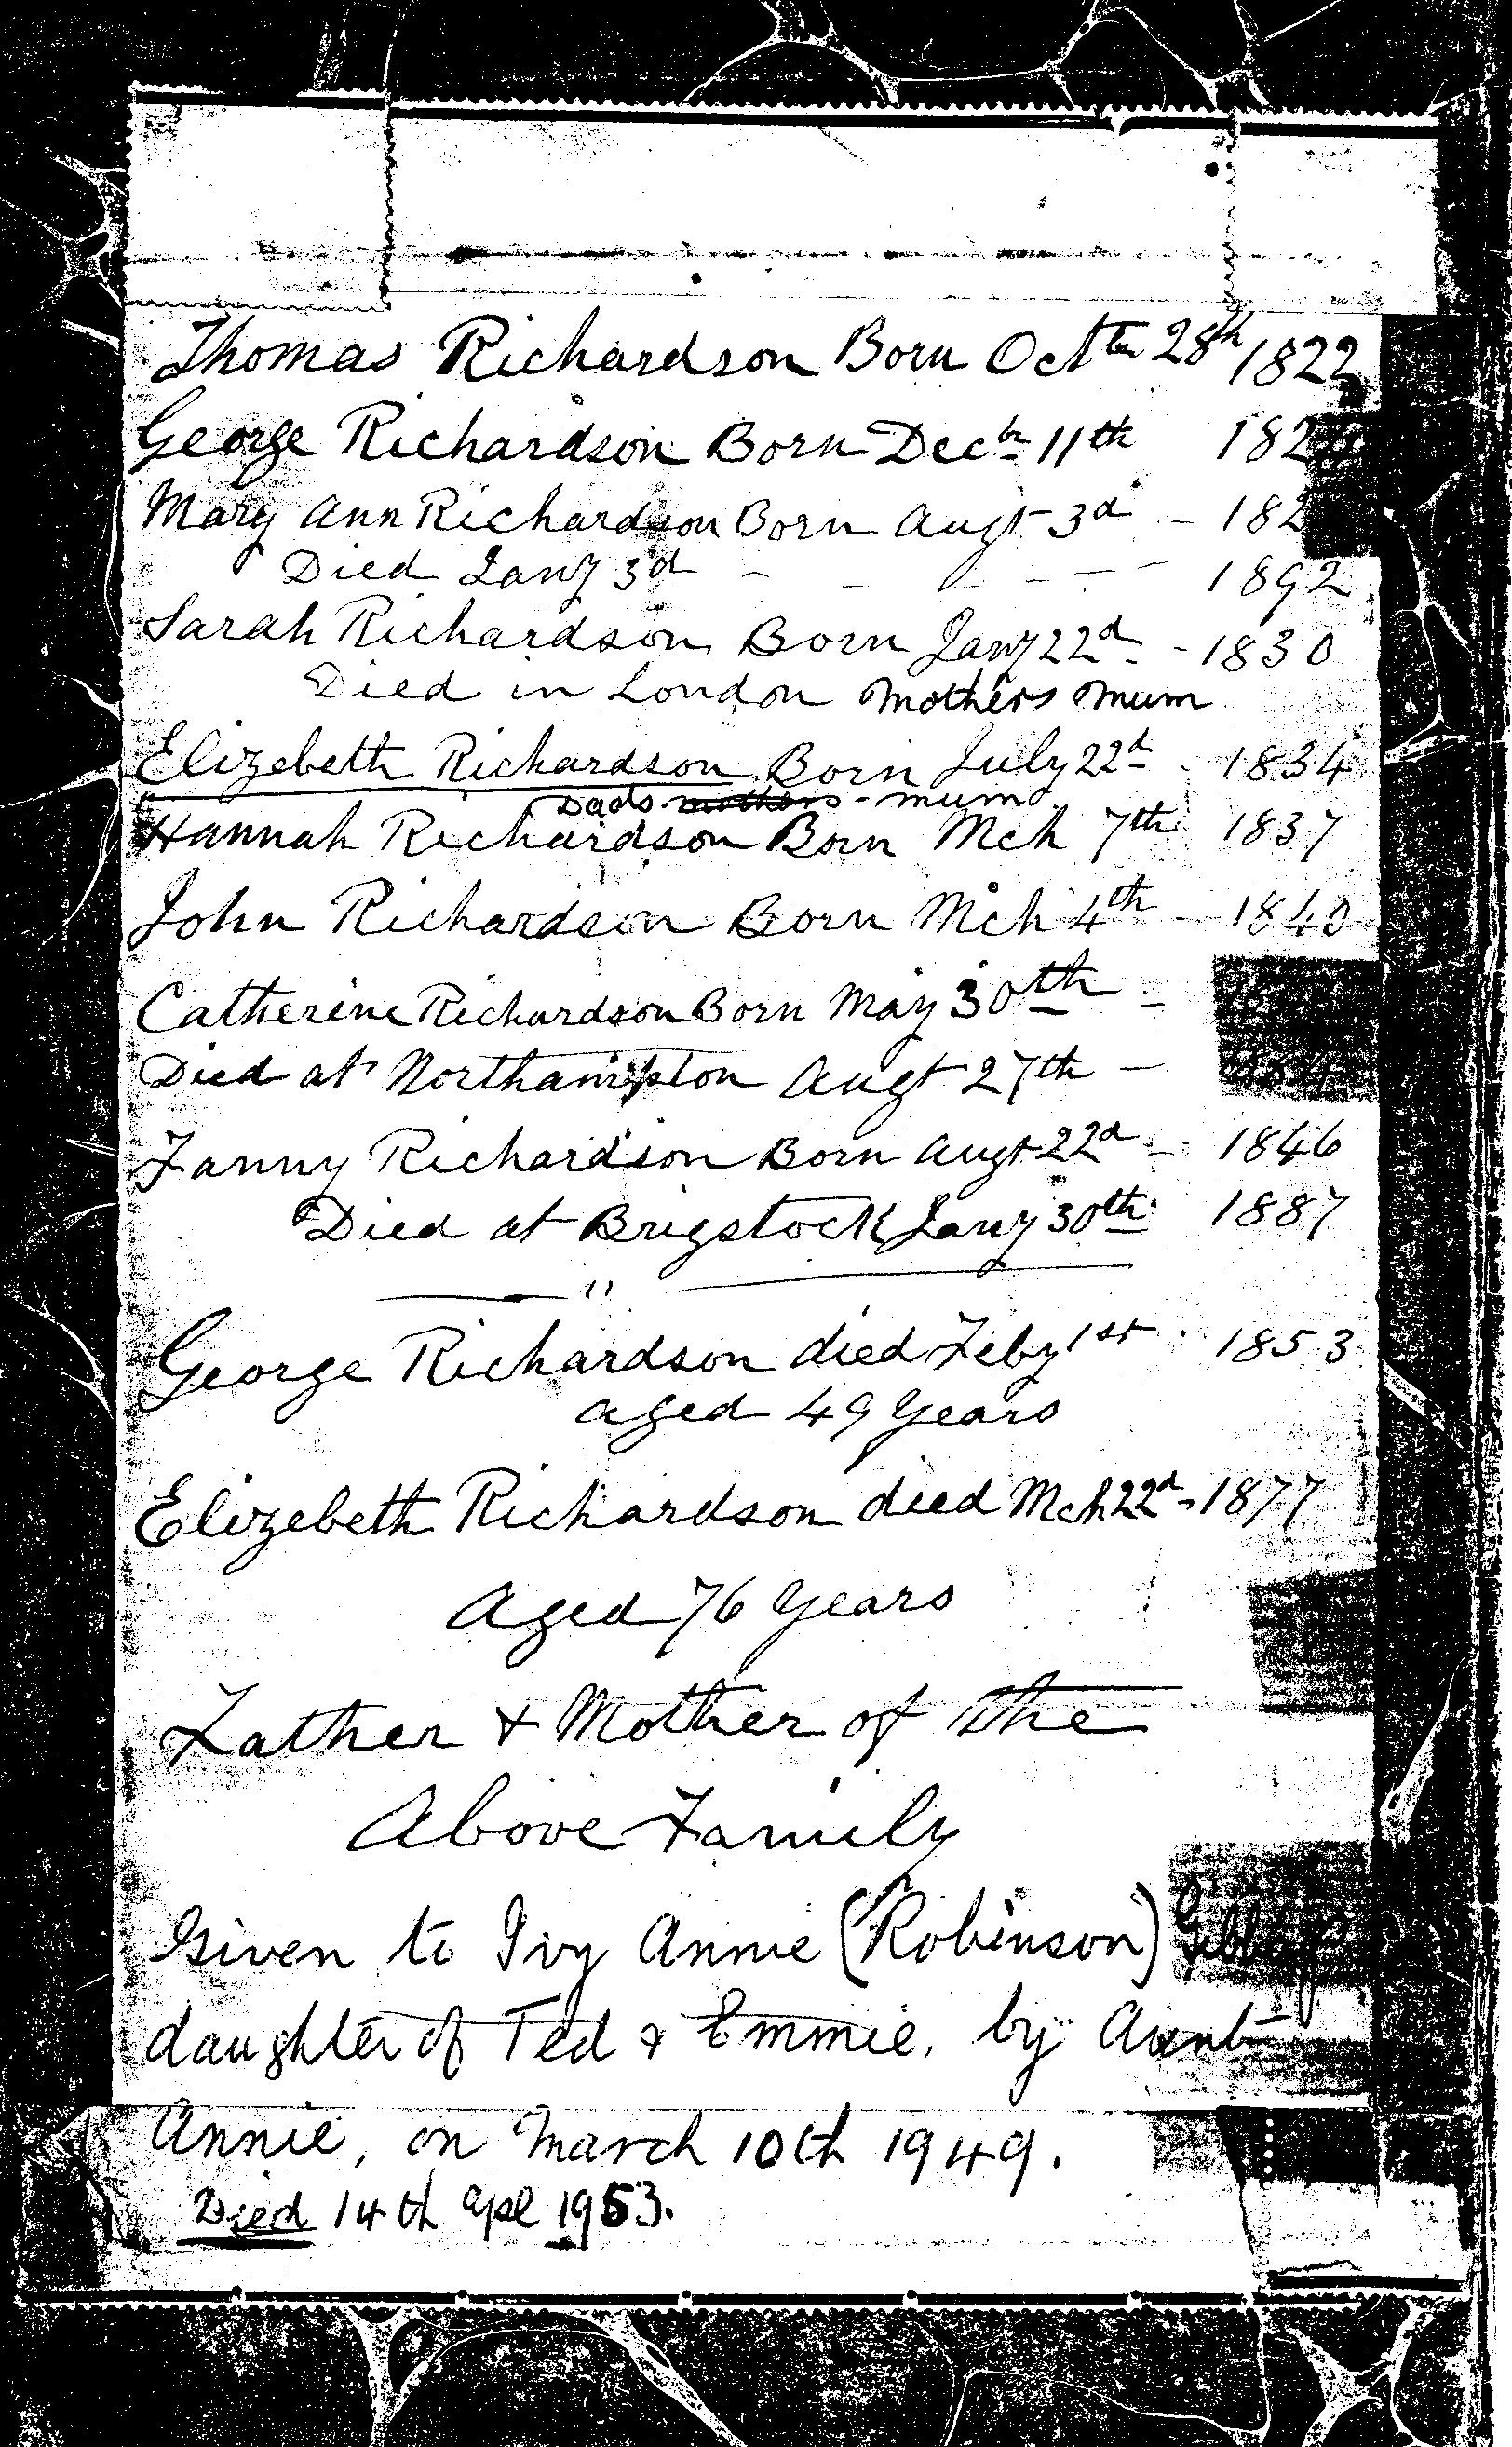 Thomas Richardson Born Octber 28th 1822
George Richardson Born Decbr 11th
Mary Ann Richardson Born Augt 3d -
Died Jany 3d - - - - - - 1892
Sarah Richardson Born Jany 22d - 1830
Died in London Mothers Mum
Elizebeth Richardson Born July 22d - 1834
Dads mothers - mum
Hannah Richardson Born Mch 7th 1837
John Richardson Born Mch 4th - 1840
Catherine Richardson Born May 30th -
Died at Northampton Augt 27th -
Fanny Richardson Born Augt 22d - 1846
Died at Brigstock Jany 30th 1887
"
George Richardson died Feby 1st 1853
aged 49 Years
Elizebeth Richardson died Mch 22d - 1877
Aged 76 Years
Father & Mother of the
Above Family
Given to Ivy Annie (Robinson)
daughter of Ted & Emmie, by Aunt
Annie, on March 10th 1949.
Died 14th Apl 1953.